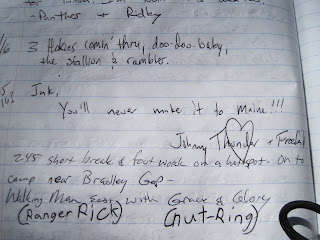 - Panther + Ridley
3 Hokies comin' thru, doo-doo-baby,
the stallion & rambler.
Ink,
You'll never make it to Maine!!!
Johnny Thunder +
245 short break & foot work on a hotspot. On to
camp near Bradley Gap-
Walking Man East with Grace & Glory
(Ranger Rick) (Nut-Ring)